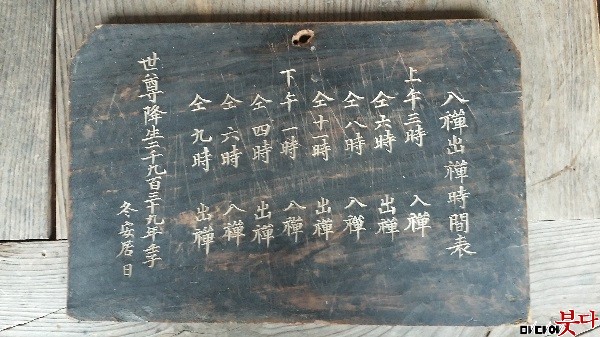 入禪出禪時間表
上午三時 入禪
仝六時 出禪
仝八時 入禪
仝十一時 出禪
下午一時 入禪
仝四時 出禪
仝六時 入禪
仝九時 出禪
世尊降生二千九百三十九年壬子
冬安居日
미디어붓다